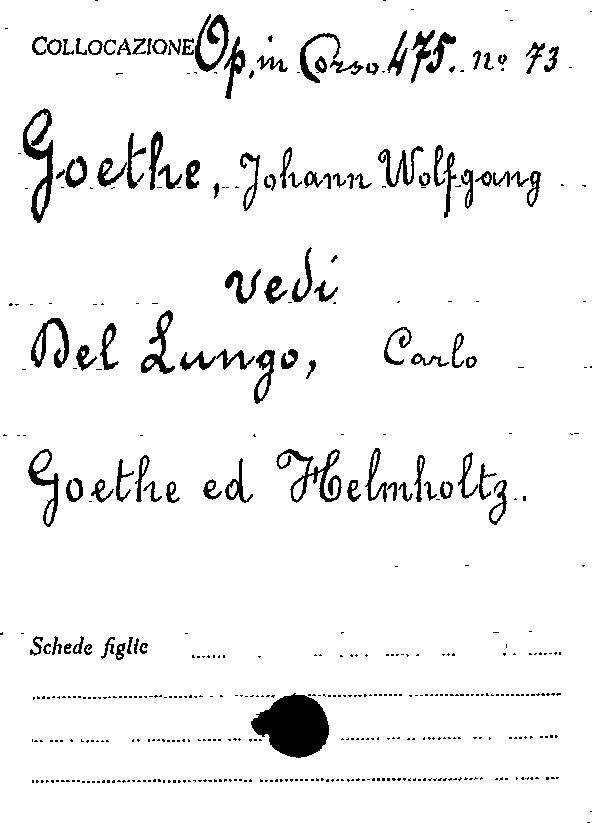 COLLOCAZIONE Op. in Corso 475. nº 73
Goethe, Johann Wolfgang
vedi
Del Lungo, Carlo
Goethe ed Helmholtz.
Schede figlie